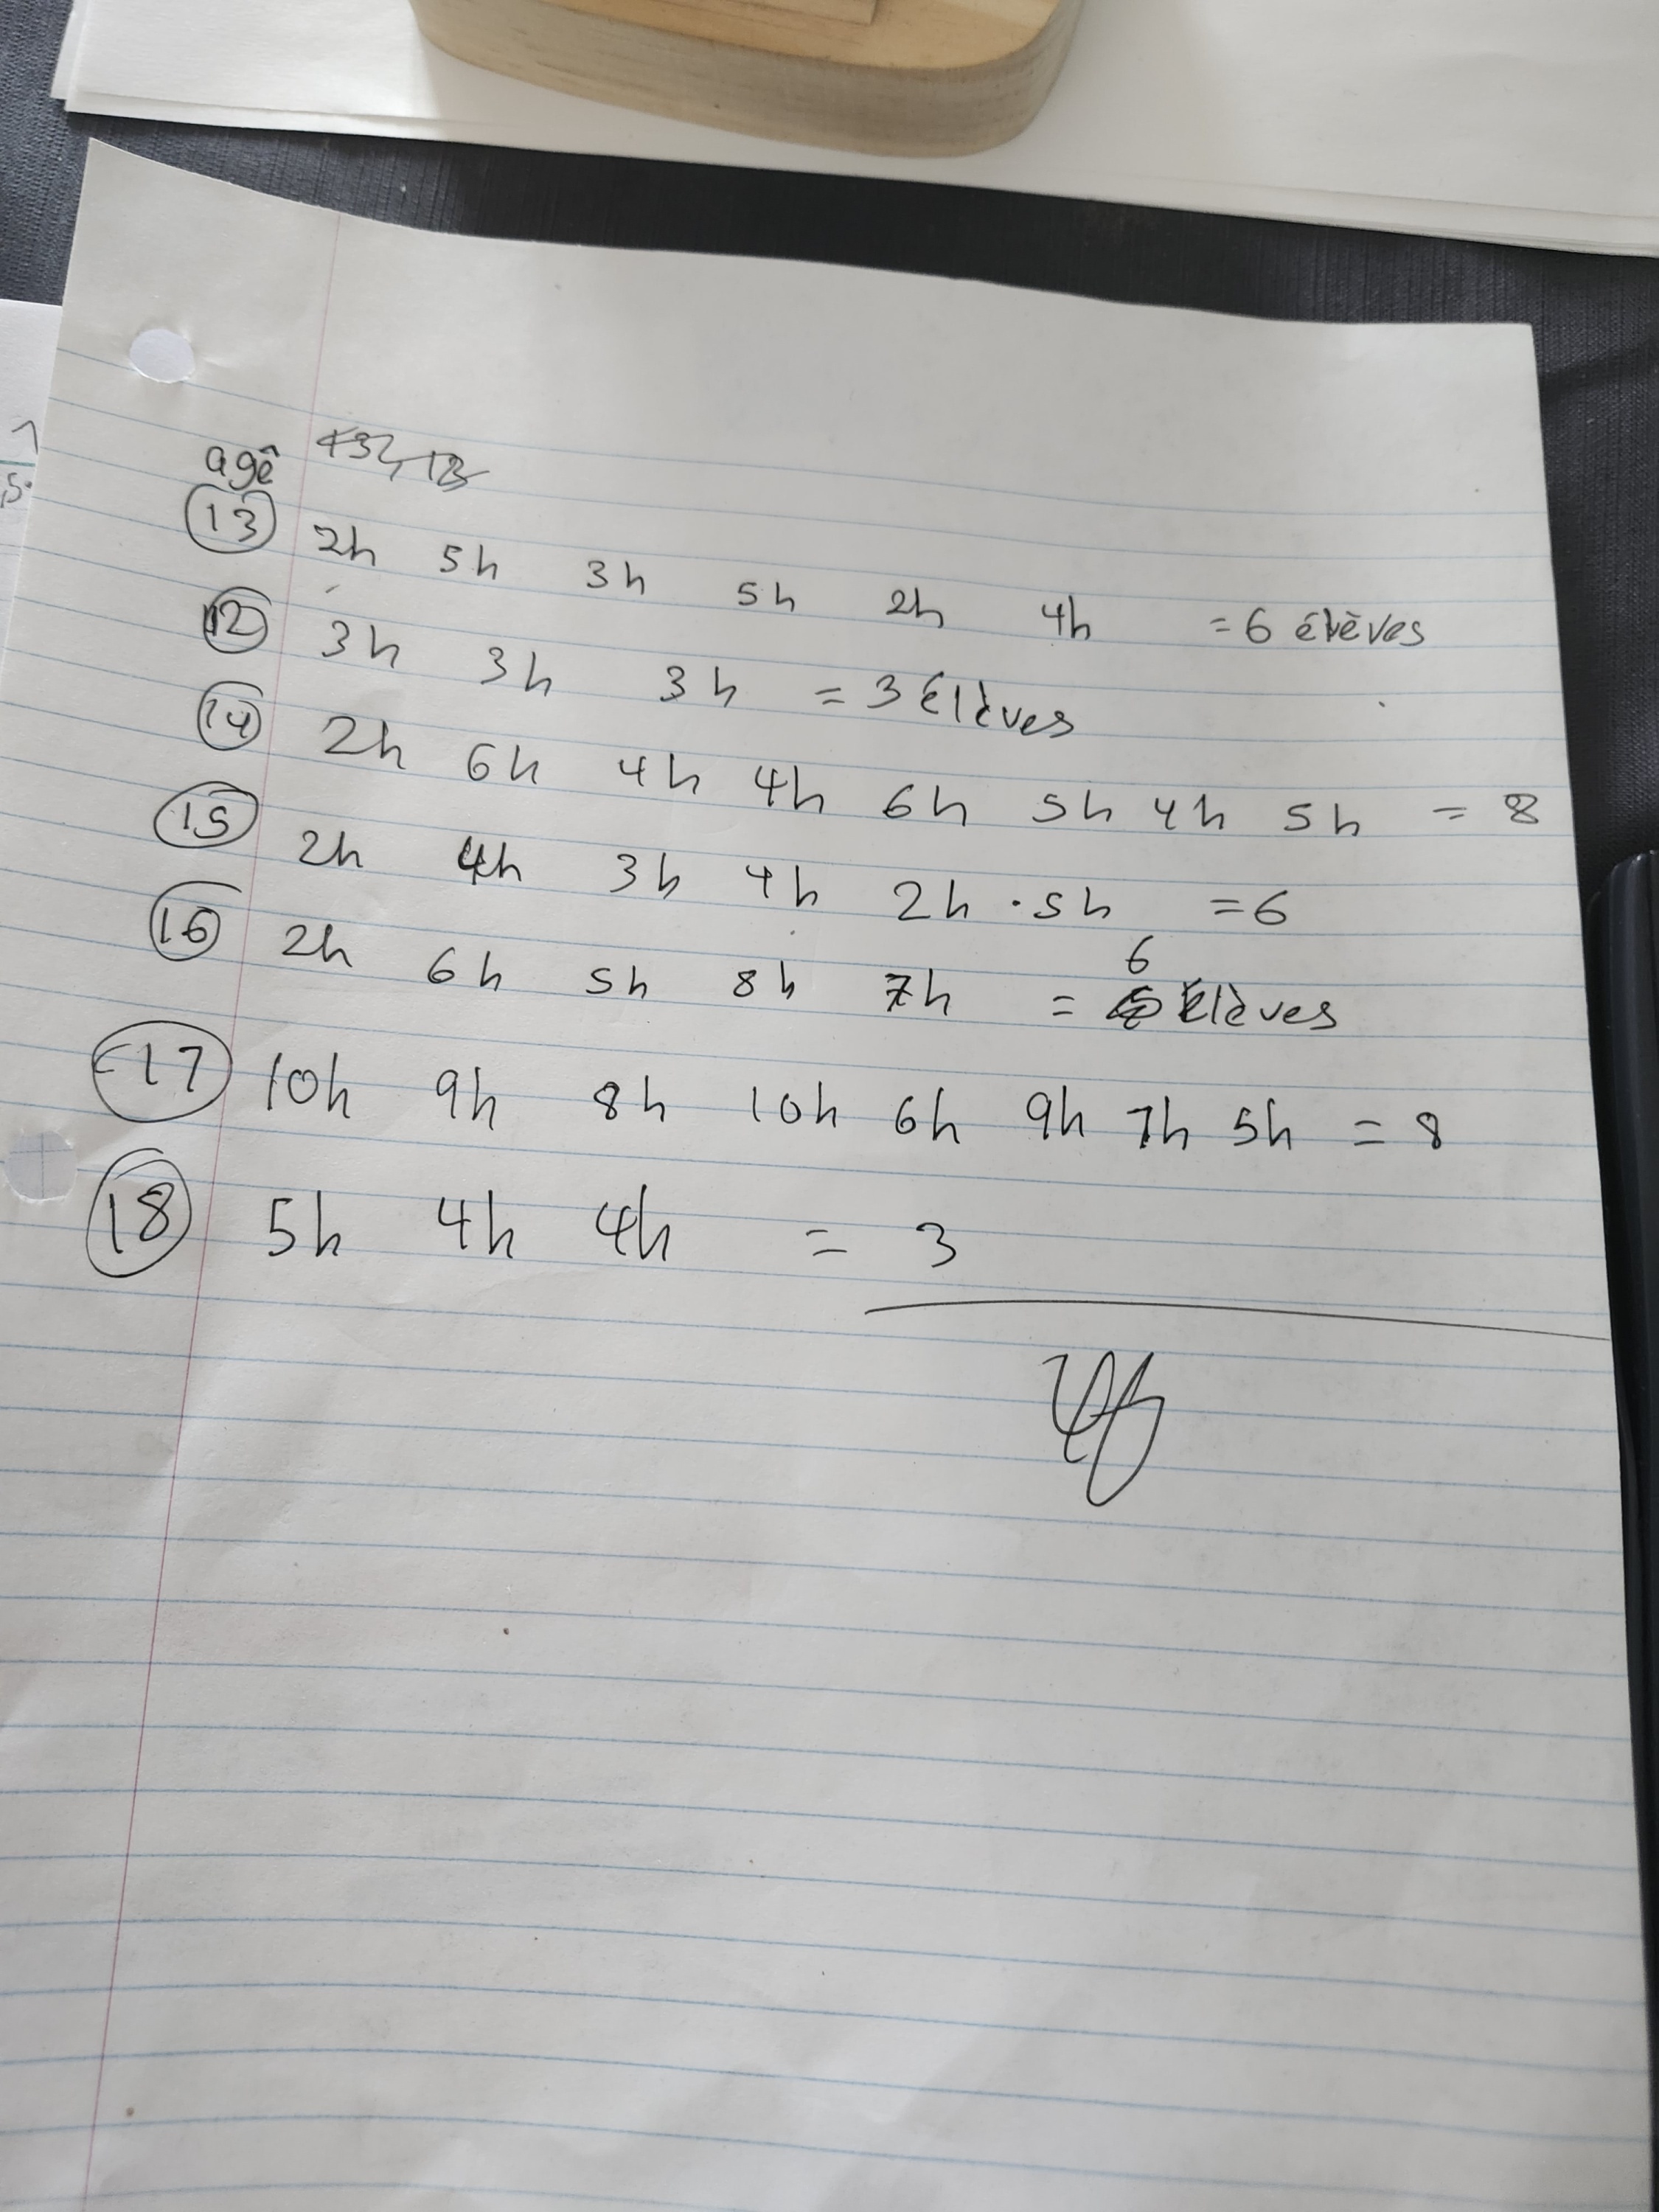 agê
13 2h 5h 3h 5h 2h 4h = 6 élèves
12 3h 3h 3h = 3 élèves
14 2h 6h 4h 4h 6h 5h 4h 5h = 8
15 2h 4h 3h 4h 2h · 5h = 6
6
16 2h 6h 5h 8h 7h = élèves
17 10h 9h 8h 10h 6h 9h 7h 5h = 8
18 5h 4h 4h = 3